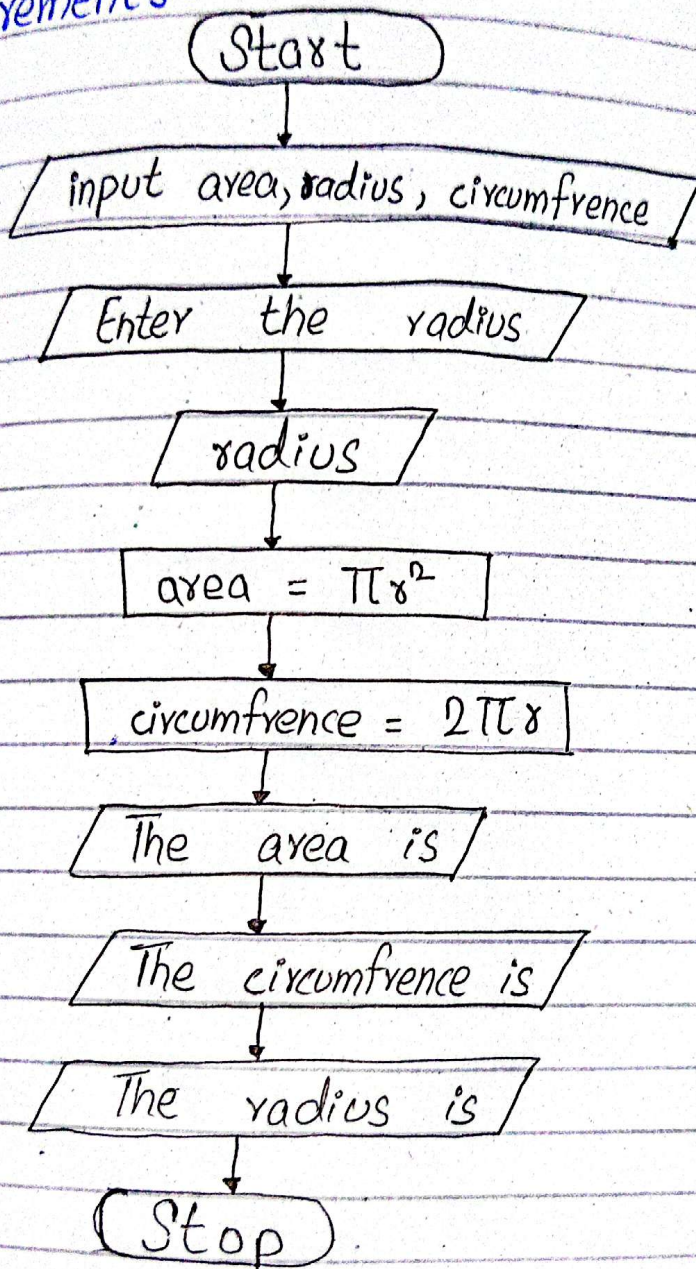 Start
input area, radius, circumfrence
Enter the radius
radius
area = πr²
circumfrence = 2πr
The area is
The circumfrence is
The radius is
Stop